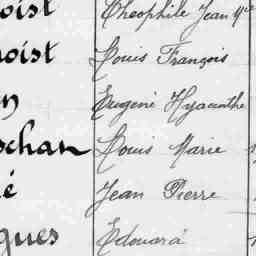 oist Théophile Jean Mie
noist Louis François
n Eugène Hyacinthe
schan Louis Marie
é Jean Pierre
gues Edouard